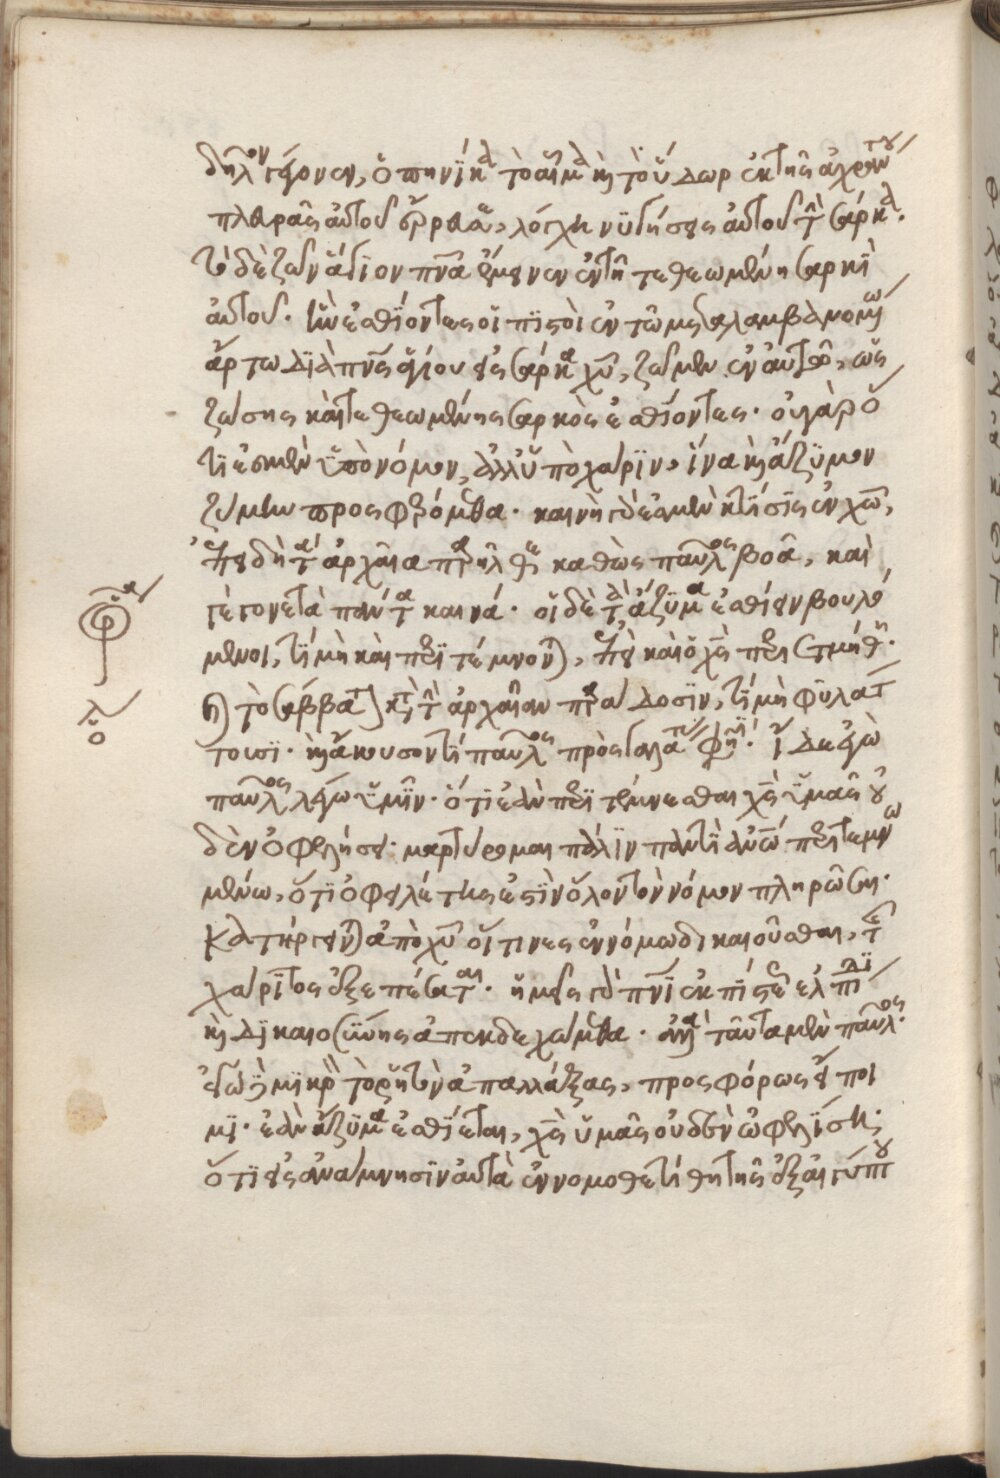 δῆλον γέγονεν, ὁπηνίκα τὸ αἷμα κ τὸ ὕδωρ ἐκ τῆς ἀχράντου
πλευρᾶς αὐτοῦ ἔρρευσε, λόγχη νυγήσης αὐτοῦ τὴν σάρκα.
τὸ δὲ ζῶν ἅγιον πνα ἔμεινεν ἐν τῇ τεθεωμένη σαρκὶ
αὐτοῦ. ἣν ἐσθίοντες οἱ πιστοὶ ἐν τῶ μεταλαμβανομένω
ἄρτω διὰ πνς ἁγίου εἰς σάρκα χυ, ζῶμεν ἐν αὐτῶ, ὡς
ζώσης καὶ τεθεωμένης σαρκὸς ἐσθίοντες. οὐ γὰρ ὅ
τι ἐσμὲν ὑπὸ νόμον, ἀλλ' ὑπὸ χάριν, ἵνα κ ἄζυμον
ζύμην προσφερόμεθα. καινὴ δέ ἐσμὲν κτίσις ἐν χω,
ἐπειδὴ τὰ ἀρχαῖα παρῆλθε καθὼς παῦλος βοᾶ, καὶ
γέγονε τὰ πάντα καινά. οἱ δὲ τὰ ἄζυμα ἐσθίειν βουλό
μενοι, τί μὴ καὶ περιτέμνονται, ἐπεὶ καὶ ὁ χς περιετμήθη.
καὶ τὸ σάββατον κατὰ τὴν ἀρχαίαν παράδοσιν, τί μὴ φυλάτ
τουσι. κ ἄκουσον τί παῦλος πρὸς γαλάτας φησί. ἴδε ἐγὼ
παῦλος λέγω ὑμῖν. ὅτι ἐὰν περιτέμνεσθαι χς ὑμᾶς οὐ
δὲν ὀφελήσει. μαρτύρομαι πάλιν παντὶ ἀνω περιτεμνο
μένω, ὅτι ὀφειλέτης ἐστὶν ὅλον τὸν νόμον πληρῶσαι.
κατηργήθητε ἀπὸ χυ οἵτινες ἐν νόμω δικαιοῦσθαι, τῆς
χάριτος ἐξεπέσατε. ἡμεῖς δὲ πνι ἐκ πίστεως ἐλπίδι
κ δικαιοσύνης ἀπεκδεχώμεθα. ταῦτα μὲν παῦλος.
ἐγὼ μικρὸν τὸ ῥητὸν ἀπαλλάξας, προσφόρως εἴποι
μι. ἐὰν ἄζυμα ἐσθίεται, χς ὑμᾶς οὐδὲν ὠφελήσει.
ὅτι εἰς ἀνάμνησιν αὐτὰ ἐνομοθετήθη τῆς ἐξ αἰγύπτου